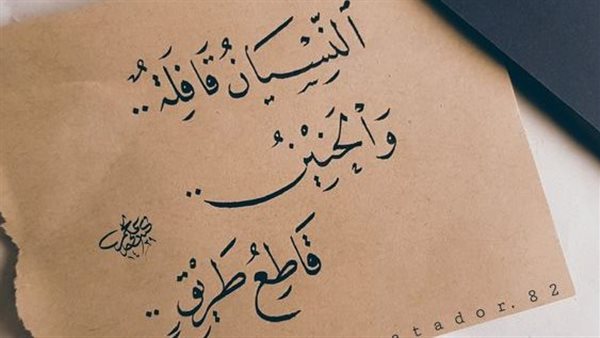 ٱلنِّسْيَانُ قَافِلَةٌ..
وَٱلْحَنِيْنُ..
قَاطِعُ طَرِيْقٍ..
tador.82